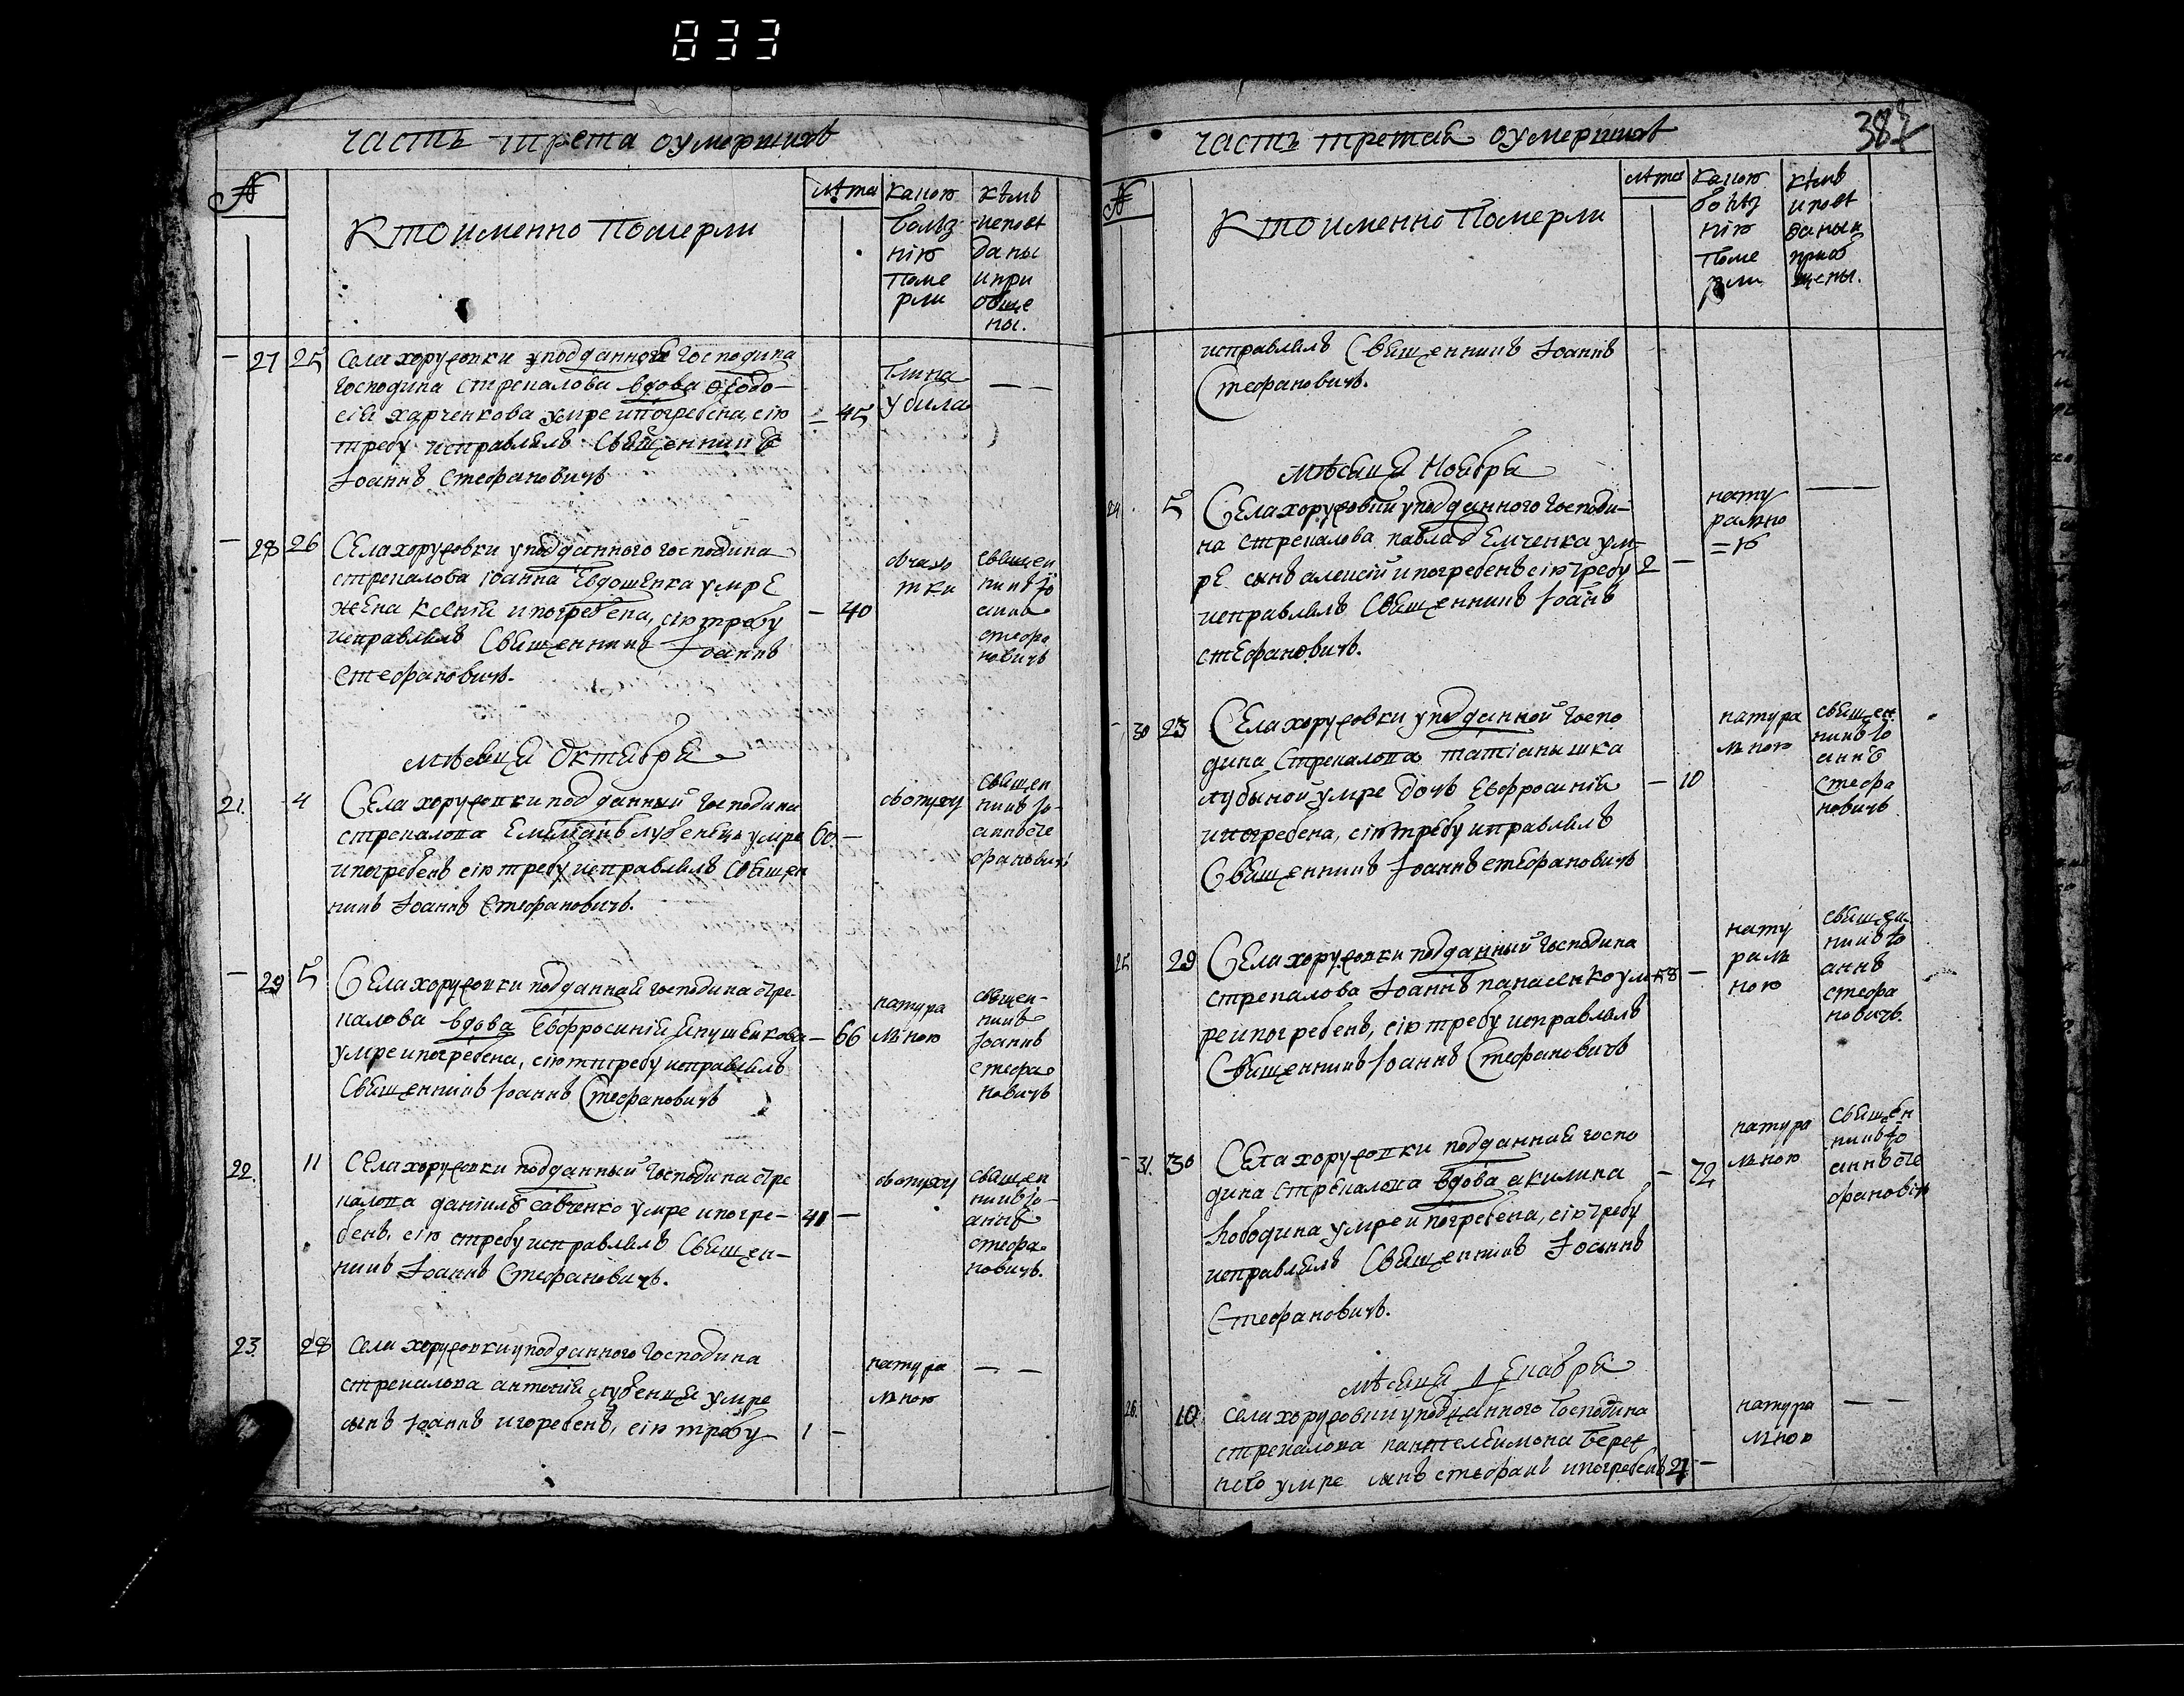 833
часть трета оумершихъ
№
Кто именно Померли
лѣта
какою
болѣз
нію
Поме
рли
кѣмъ
исповѣ
даны
и при
обще
ны.
— 27 25 Села хоружовки у подданной господина
господина стрекалова вдова Ѳеодо-
сія харченкова умре и погребена, сію
требу исправлялъ Священникъ
Іоаннъ Стефановичъ
— 45
глина
убила
— —
— 28 26 Села хоружовки у подданного господина
стрекалова іоанна Евдошенка умре
жена Ксенія и погребена, сію требу
исправлялъ Священникъ Іоаннъ
Стефановичъ.
— 40
священ
никъ Іо
аннъ
стефа
новичъ
Мѣсяца Октября
21. 4 Села хоружовки подданный господина
стрекалова Емиліанъ лубенецъ умре
и погребенъ сію требу исправлялъ Священ
никъ Іоаннъ Стефановичъ.
60 —
священ
никъ Іо-
аннъ сте
фановичъ
— 29 5 Села хоружовки подданная господина стре-
калова вдова Евфросинія
умре и погребена, сію требу исправлялъ
Священникъ Іоаннъ Стефановичъ
— 66
натура
лною
священ-
никъ
Іоаннъ
стефа
новичъ
22. 11 Села хоружовки подданный господина стре
калова даніилъ савченко умре и погре-
бенъ, сію требу исправлялъ Священ-
никъ Іоаннъ Стефановичъ.
41 —
священ
никъ Іо-
аннъ
стефа
новичъ.
23. 28 Села хоружовки у подданного господина
стрекалова антонія лубенця умре
сынъ Іоаннъ и погребенъ, сію требу
1 —
натура
лною
— —
часть третая оумершихъ
383
№
Кто именно Померли
лѣта
какою
болѣз
нію
Поме
рли
кѣмъ
исповѣ
даны и
приоб
щены.
исправлялъ Священникъ Іоаннъ
Стефановичъ.
Мѣсяца Ноября
24 5 Села хоружовки у подданного господи-
на стрекалова павла демченка ум-
ре сынъ алексій и погребенъ сію требу
исправлялъ Священникъ Іоаннъ
стефановичъ.
2 —
нату
рално
=ю
—
— 30 23 Села хоружовки у подданной госпо
дина Стрекалова татіаны шка
лубыной умре дочъ Евфросинія
и погребена, сію требу исправлялъ
Священникъ Іоаннъ стефановичъ
— 10
натура
лною
священ
никъ Іо
аннъ
стефа
новичъ
25 29 Села хоружовки подданный господина
стрекалова Іоаннъ панасенко ум
ре и погребенъ, сію требу исправлялъ
Священникъ Іоаннъ Стефановичъ
58 —
нату
рал
ною
священ
никъ Іо
аннъ
стефа
новичъ.
— 31. 30 Села хоружовки подданная госпо
дина стрекалова вдова акилина
лободина умре и погребена, сію требу
исправлялъ Священникъ Іоаннъ
Стефановичъ.
— 72
натура
лною
священ
никъ Іо
аннъ сте
фановичъ
Мѣсяца Декабря
26. 10 Села хоружовки у подданного господина
стрекалова пантелеимона
умре сынъ стефанъ и погребенъ
—
натура
лною
— —